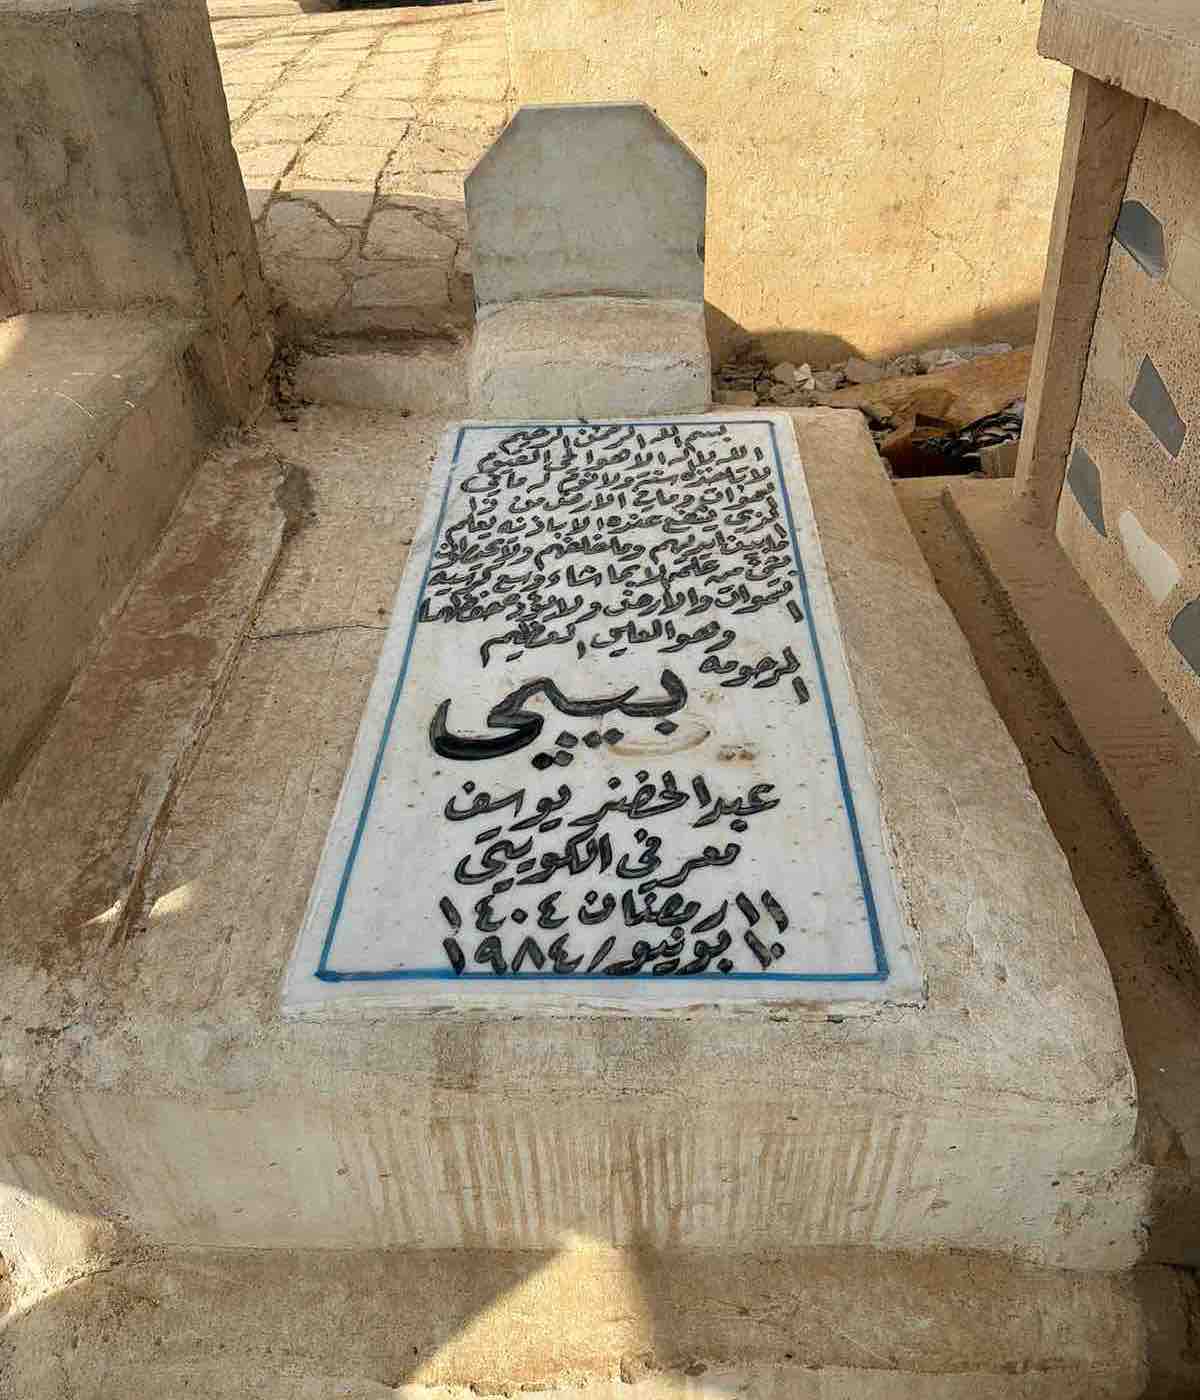 بسم الله الرحمن الرحيم
الله لا اله الا هو الحي القيوم
لا تاخذه سنة ولا نوم له ما في
السموات وما في الارض من ذا
الذي يشفع عنده الا باذنه يعلم
ما بين ايديهم وما خلفهم ولا يحيطون
بشيء من علمه الا بما شاء وسع كرسيه
السموات والارض ولا يؤده حفظهما
وهو العلي العظيم
المرحومه
بيبي
عبد الخضر يوسف
معرفي الكويتي
١١ رمضان ١٤٠٤
١٠ يونيو / ١٩٨٤